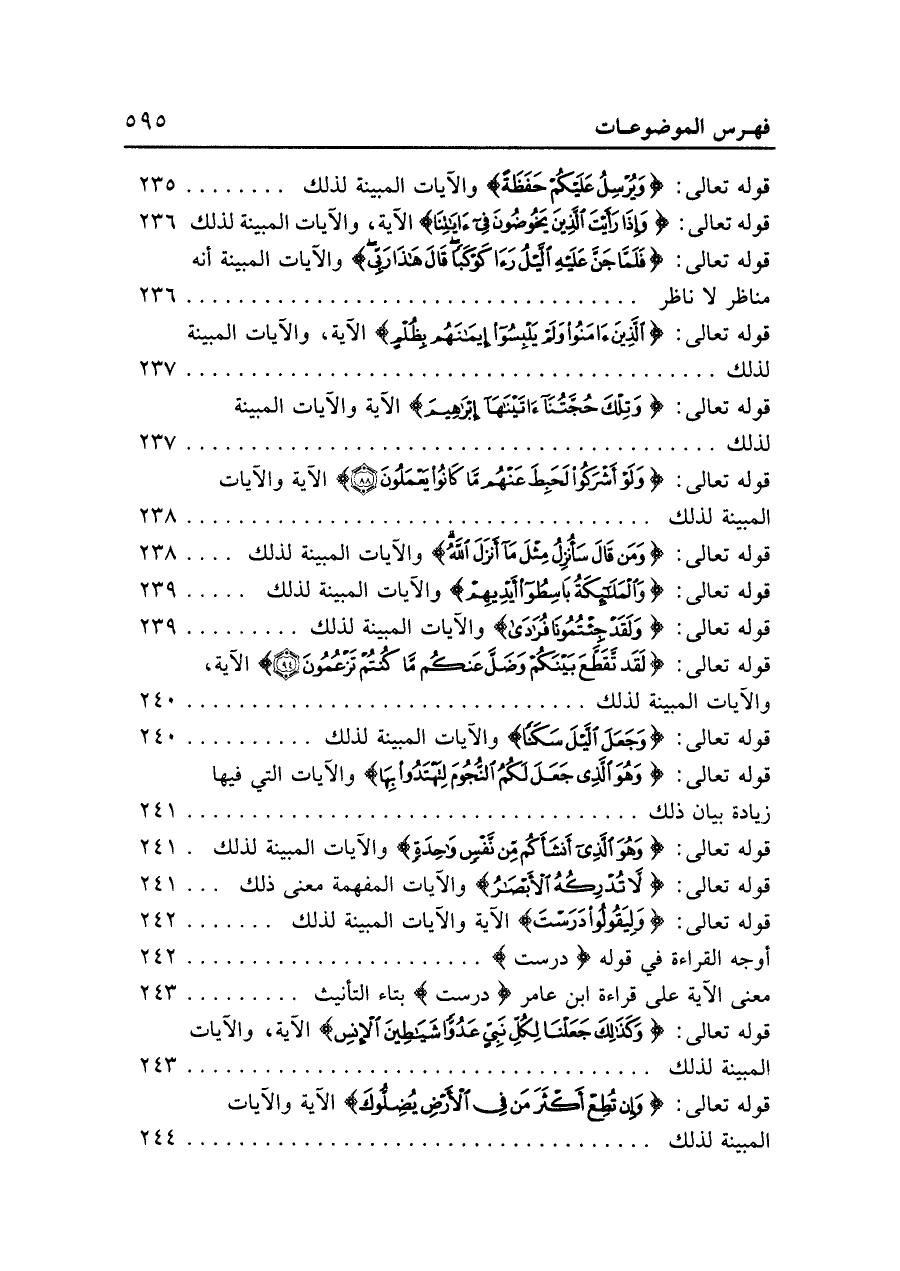 فهـرس الموضوعـات ٥٩٥
قوله تعالى: ﴿ وَيُرْسِلُ عَلَيْكُمْ حَفَظَةً﴾ والآيات المبينة لذلك . . . . . . . . ٢٣٥
قوله تعالى: ﴿ وَإِذَا رَأَيْتَ ٱلَّذِينَ يَخُوضُونَ فِىٓ ءَايَٰتِنَا﴾ الآية، والآيات المبينة لذلك ٢٣٦
قوله تعالى: ﴿فَلَمَّا جَنَّ عَلَيْهِ ٱلَّيْلُ رَءَا كَوْكَبًاۖ قَالَ هَٰذَا رَبِّىۖ﴾ والآيات المبينة أنه
مناظر لا ناظر . . . . . . . . . . . . . . . . . . . . . . . . . . . . . . . . . . ٢٣٦
قوله تعالى: ﴿ٱلَّذِينَ ءَامَنُوا۟ وَلَمْ يَلْبِسُوٓا۟ إِيمَٰنَهُم بِظُلْمٍ﴾ الآية، والآيات المبينة
لذلك . . . . . . . . . . . . . . . . . . . . . . . . . . . . . . . . . . . . . . . . ٢٣٧
قوله تعالى: ﴿ وَتِلْكَ حُجَّتُنَآ ءَاتَيْنَٰهَآ إِبْرَٰهِيمَ﴾ الآية والآيات المبينة
لذلك . . . . . . . . . . . . . . . . . . . . . . . . . . . . . . . . . . . . . . . . ٢٣٧
قوله تعالى: ﴿ وَلَوْ أَشْرَكُوا۟ لَحَبِطَ عَنْهُم مَّا كَانُوا۟ يَعْمَلُونَ ٨٨﴾ الآية والآيات
المبينة لذلك . . . . . . . . . . . . . . . . . . . . . . . . . . . . . . . . . . . ٢٣٨
قوله تعالى: ﴿ وَمَن قَالَ سَأُنزِلُ مِثْلَ مَآ أَنزَلَ ٱللَّهُۗ﴾ والآيات المبينة لذلك . . . . ٢٣٨
قوله تعالى: ﴿وَٱلْمَلَٰٓئِكَةُ بَاسِطُوٓا۟ أَيْدِيهِمْ﴾ والآيات المبينة لذلك . . . . . ٢٣٩
قوله تعالى: ﴿ وَلَقَدْ جِئْتُمُونَا فُرَٰدَىٰ﴾ والآيات المبينة لذلك . . . . . . . . . ٢٣٩
قوله تعالى: ﴿لَقَد تَّقَطَّعَ بَيْنَكُمْ وَضَلَّ عَنكُم مَّا كُنتُمْ تَزْعُمُونَ ٩٤﴾ الآية،
والآيات المبينة لذلك . . . . . . . . . . . . . . . . . . . . . . . . . . . . . . ٢٤٠
قوله تعالى: ﴿وَجَعَلَ ٱلَّيْلَ سَكَنًا﴾ والآيات المبينة لذلك . . . . . . . . . . ٢٤٠
قوله تعالى: ﴿ وَهُوَ ٱلَّذِى جَعَلَ لَكُمُ ٱلنُّجُومَ لِتَهْتَدُوا۟ بِهَا﴾ والآيات التي فيها
زيادة بيان ذلك . . . . . . . . . . . . . . . . . . . . . . . . . . . . . . . . . . ٢٤١
قوله تعالى: ﴿ وَهُوَ ٱلَّذِىٓ أَنشَأَكُم مِّن نَّفْسٍ وَٰحِدَةٍ﴾ والآيات المبينة لذلك . ٢٤١
قوله تعالى: ﴿ لَّا تُدْرِكُهُ ٱلْأَبْصَٰرُ﴾ والآيات المفهمة معنى ذلك . . . ٢٤١
قوله تعالى: ﴿ وَلِيَقُولُوا۟ دَرَسْتَ﴾ الآية والآيات المبينة لذلك . . . . . . . ٢٤٢
أوجه القراءة في قوله ﴿ درست ﴾ . . . . . . . . . . . . . . . . . . . . . . . ٢٤٢
معنى الآية على قراءة ابن عامر ﴿ درست ﴾ بتاء التأنيث . . . . . . . . . ٢٤٣
قوله تعالى: ﴿ وَكَذَٰلِكَ جَعَلْنَا لِكُلِّ نَبِىٍّ عَدُوًّا شَيَٰطِينَ ٱلْإِنسِ﴾ الآية، والآيات
المبينة لذلك . . . . . . . . . . . . . . . . . . . . . . . . . . . . . . . . . . . ٢٤٣
قوله تعالى: ﴿ وَإِن تُطِعْ أَكْثَرَ مَن فِى ٱلْأَرْضِ يُضِلُّوكَ﴾ الآية والآيات
المبينة لذلك . . . . . . . . . . . . . . . . . . . . . . . . . . . . . . . . . . . ٢٤٤